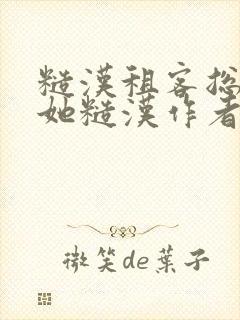 糙漢租客總
她糙漢作者
微笑de葉子